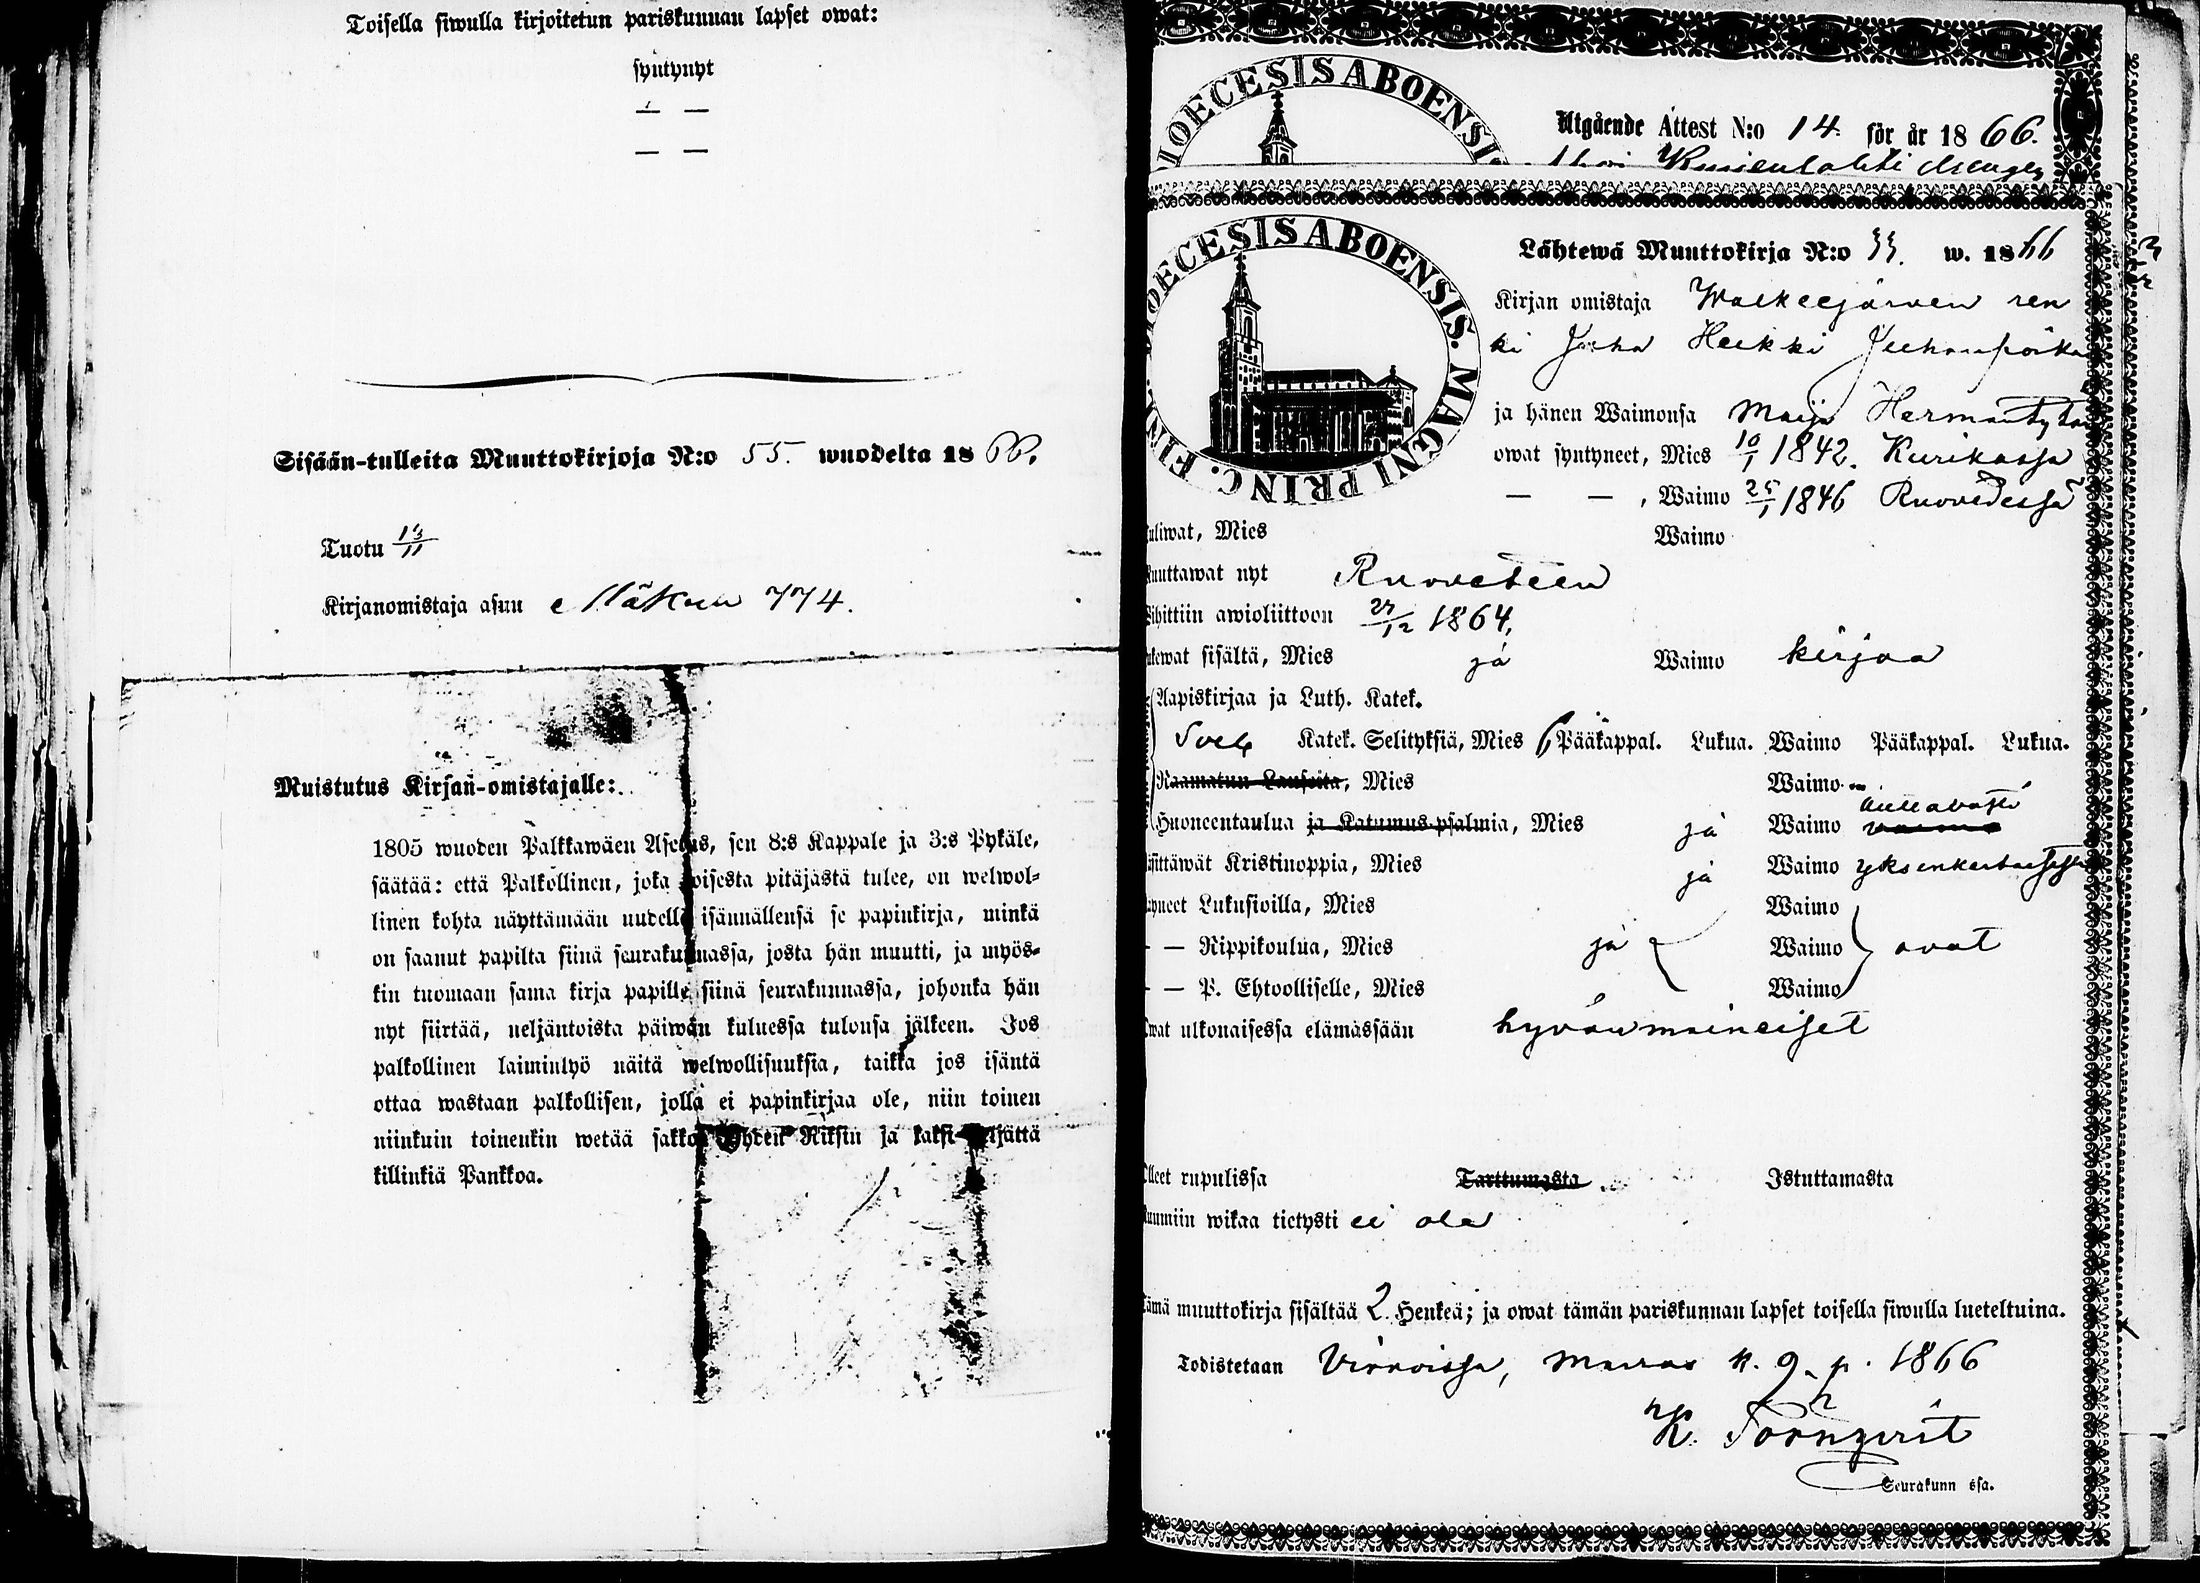 Toisella siwulla kirjoitetun pariskunnan lapset owat:
syntynyt
— —
— —
Sisään-tulleita Muuttokirjoja N:o 55. wuodelta 1866.
Tuotu 13/11
Kirjanomistaja asuu 774.
Muistutus Kirjan-omistajalle:
1805 wuoden Palkkawäen Asetus, sen 8:s Kappale ja 3:s Pykäle,
säätää: että Palkollinen, joka toisesta pitäjästä tulee, on welwol-
linen kohta näyttämään uudelle isännällensä se papinkirja, minkä
on saanut papilta siinä seurakunnassa, josta hän muutti, ja myös-
kin tuomaan sama kirja papille siinä seurakunnassa, johonka hän
nyt siirtää, neljäntoista päiwän kuluessa tulonsa jälkeen. Jos
palkollinen laiminlyö näitä welwollisuuksia, taikka jos isäntä
ottaa wastaan palkollisen, jolla ei papinkirjaa ole, niin toinen
niinkuin toinenkin wetää sakkoa Yhden Riksin ja kaksi neljättä
killinkiä Pankkoa.
IOECESIS ABOENSI
Utgående Attest N:o 14. för år 1866.
DIOECESIS ABOENSIS. MAGNI PRINC. FIN
Lähtewä Muuttokirja N:o 33. w. 1866
Kirjan omistaja Walkeejärven ren
ki Juha Heikki Juhanpoika
ja hänen Waimonsa Maija Hermantytär
owat syntyneet, Mies 10/1 1842. Kurikassa
— — , Waimo 25/1 1846 Ruovedessä
tuliwat, Mies Waimo
Muuttawat nyt Ruoveteen
Wihittiin awioliittoon 27/12 1864.
Lukewat sisältä, Mies ja Waimo kirjaa
Aapiskirjaa ja Luth. Katek.
Sveb Katek. Selityksiä, Mies 6 Pääkappal. Lukua. Waimo Pääkappal. Lukua.
Raamatun Lauseita, Mies Waimo
Huoneentaulua ja Katumus-psalmia, Mies ja Waimo auttavasti
Käsittäwät Kristinoppia, Mies ja Waimo yksenkertaisesti
Käyneet Lukusioilla, Mies Waimo
— — Rippikoulua, Mies ja Waimo ovat
— — P. Ehtoolliselle, Mies Waimo
Owat ulkonaisessa elämässään hyvänmaineiset
Olleet rupulissa Tarttumasta Istuttamasta
Ruumiin wikaa tietysti ei ole
Tämä muuttokirja sisältää 2 Henkeä; ja owat tämän pariskunnan lapset toisella siwulla lueteltuina.
Todistetaan Virroissa, Marras k. 9 p. 1866
K. Törnqvist
Seurakunn ssa.